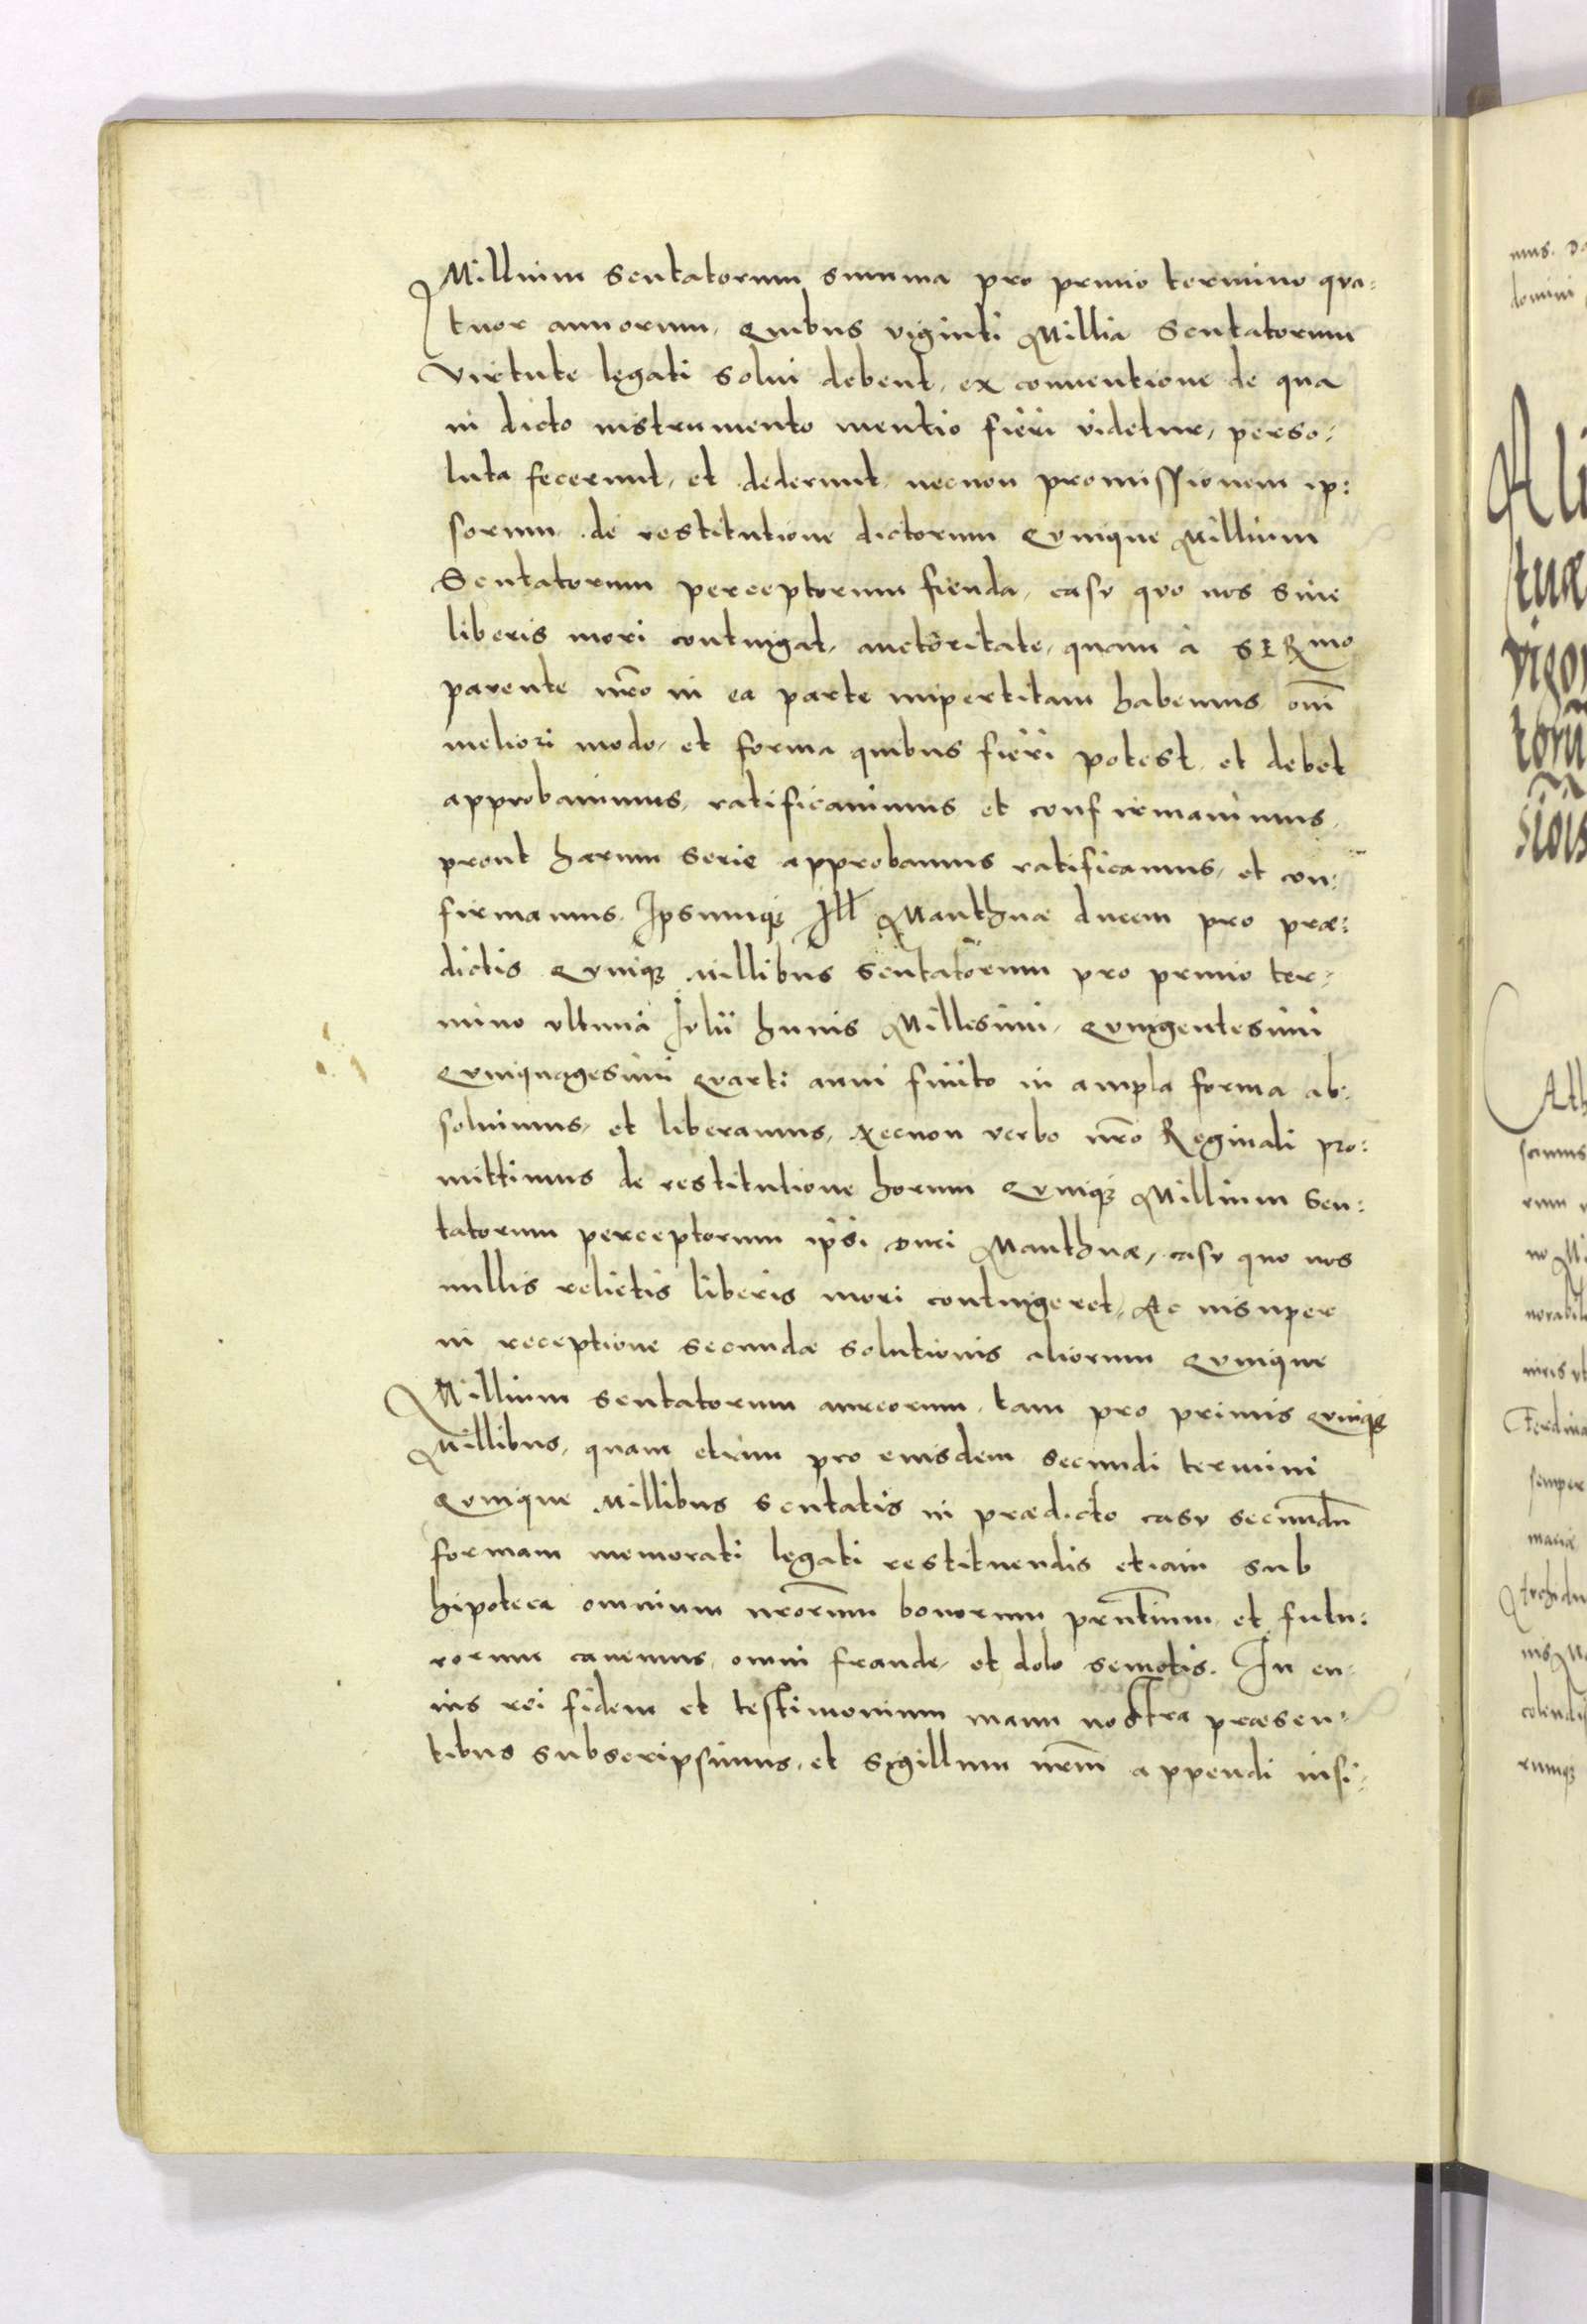 Millium Scutatorum summa pro primo termino qua:
tuor annorum, Quibus viginti Millia Scutatorum
Virtute legati Solui debent, ex conuentione de qua
in dicto instrumento mentio fieri videtur, perso:
luta fecerunt, et dederunt, necnon promissionem ip:
sorum de restitutione dictorum Quinque Millium
Scutatorum perceptorum fienda, casu quo nos sine
liberis mori contingat, auctoritate, quam à SERmo
parente nro in ea parte impertitam habemus om̄i
meliori modo, et forma quibus fieri potest, et debet
approbauimus, ratificauimus et confirmauimus,
prout harum serie approbamus ratificamus, et con:
firmamus. Ipsumq3 Ill Manthuæ ducem pro præ:
dictis Quinq3 Millibus Scutatorum pro primo ter:
mino ultima Iulii huius Millesimi, Quingentesimi
Quinquagesimi Quarti anni finito in ampla forma ab:
soluimus, et liberamus, Necnon verbo nro Reginali pro:
mittimus de restitutione horum Quinq3 Millium Scu:
tatorum perceptorum ipsi Duci Manthuæ, casu quo nos
nullis relictis liberis mori contingeret, Ac insuper
in receptione secundæ solutionis aliorum Quinque
Millium scutatorum aureorum, tam pro primis Quinq3
Millibus, quam etiam pro eiusdem secundi termini
Quinque Millibus Scutatis in prædicto casu secundū
formam memorati legati restituendis etiam sub
hipoteca omnium nrorum bonorum prntium et futu:
rorum cauemus, omni fraude, et dolo semotis. In cu:
ius rei fidem et testimonium manu nostra præsen:
tibus subscripsimus, et sigillum nrm̄ appendi iussi: